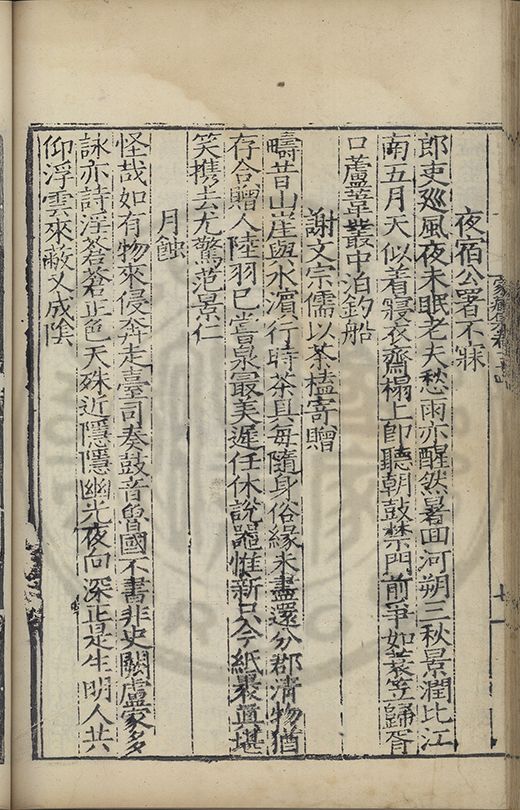 夜宿公署不寐
郎吏廵風夜未眠老夫愁雨亦醒然暑田河朔三秋景潤比江
南五月天似着寢衣齋榻上即聽朝鼓禁門前爭如蓑笠歸胥
口蘆葦叢中泊釣船
謝文宗儒以茶榼寄贈
疇昔山崖與水濵行時茶具每隨身俗緣未盡還分郡清物猶
存合贈人陸羽已嘗泉最美遲任休說器惟新只今紙裹真堪
笑携去尤驚范景仁
月蝕
怪哉如有物來侵奔走臺司奏鼓音魯國不書非史闕盧家多
詠亦詩淫蒼蒼正色天殊近隱隱幽光夜向深正是生明人共
仰浮雲來蔽又成陰
家藏集卷二十